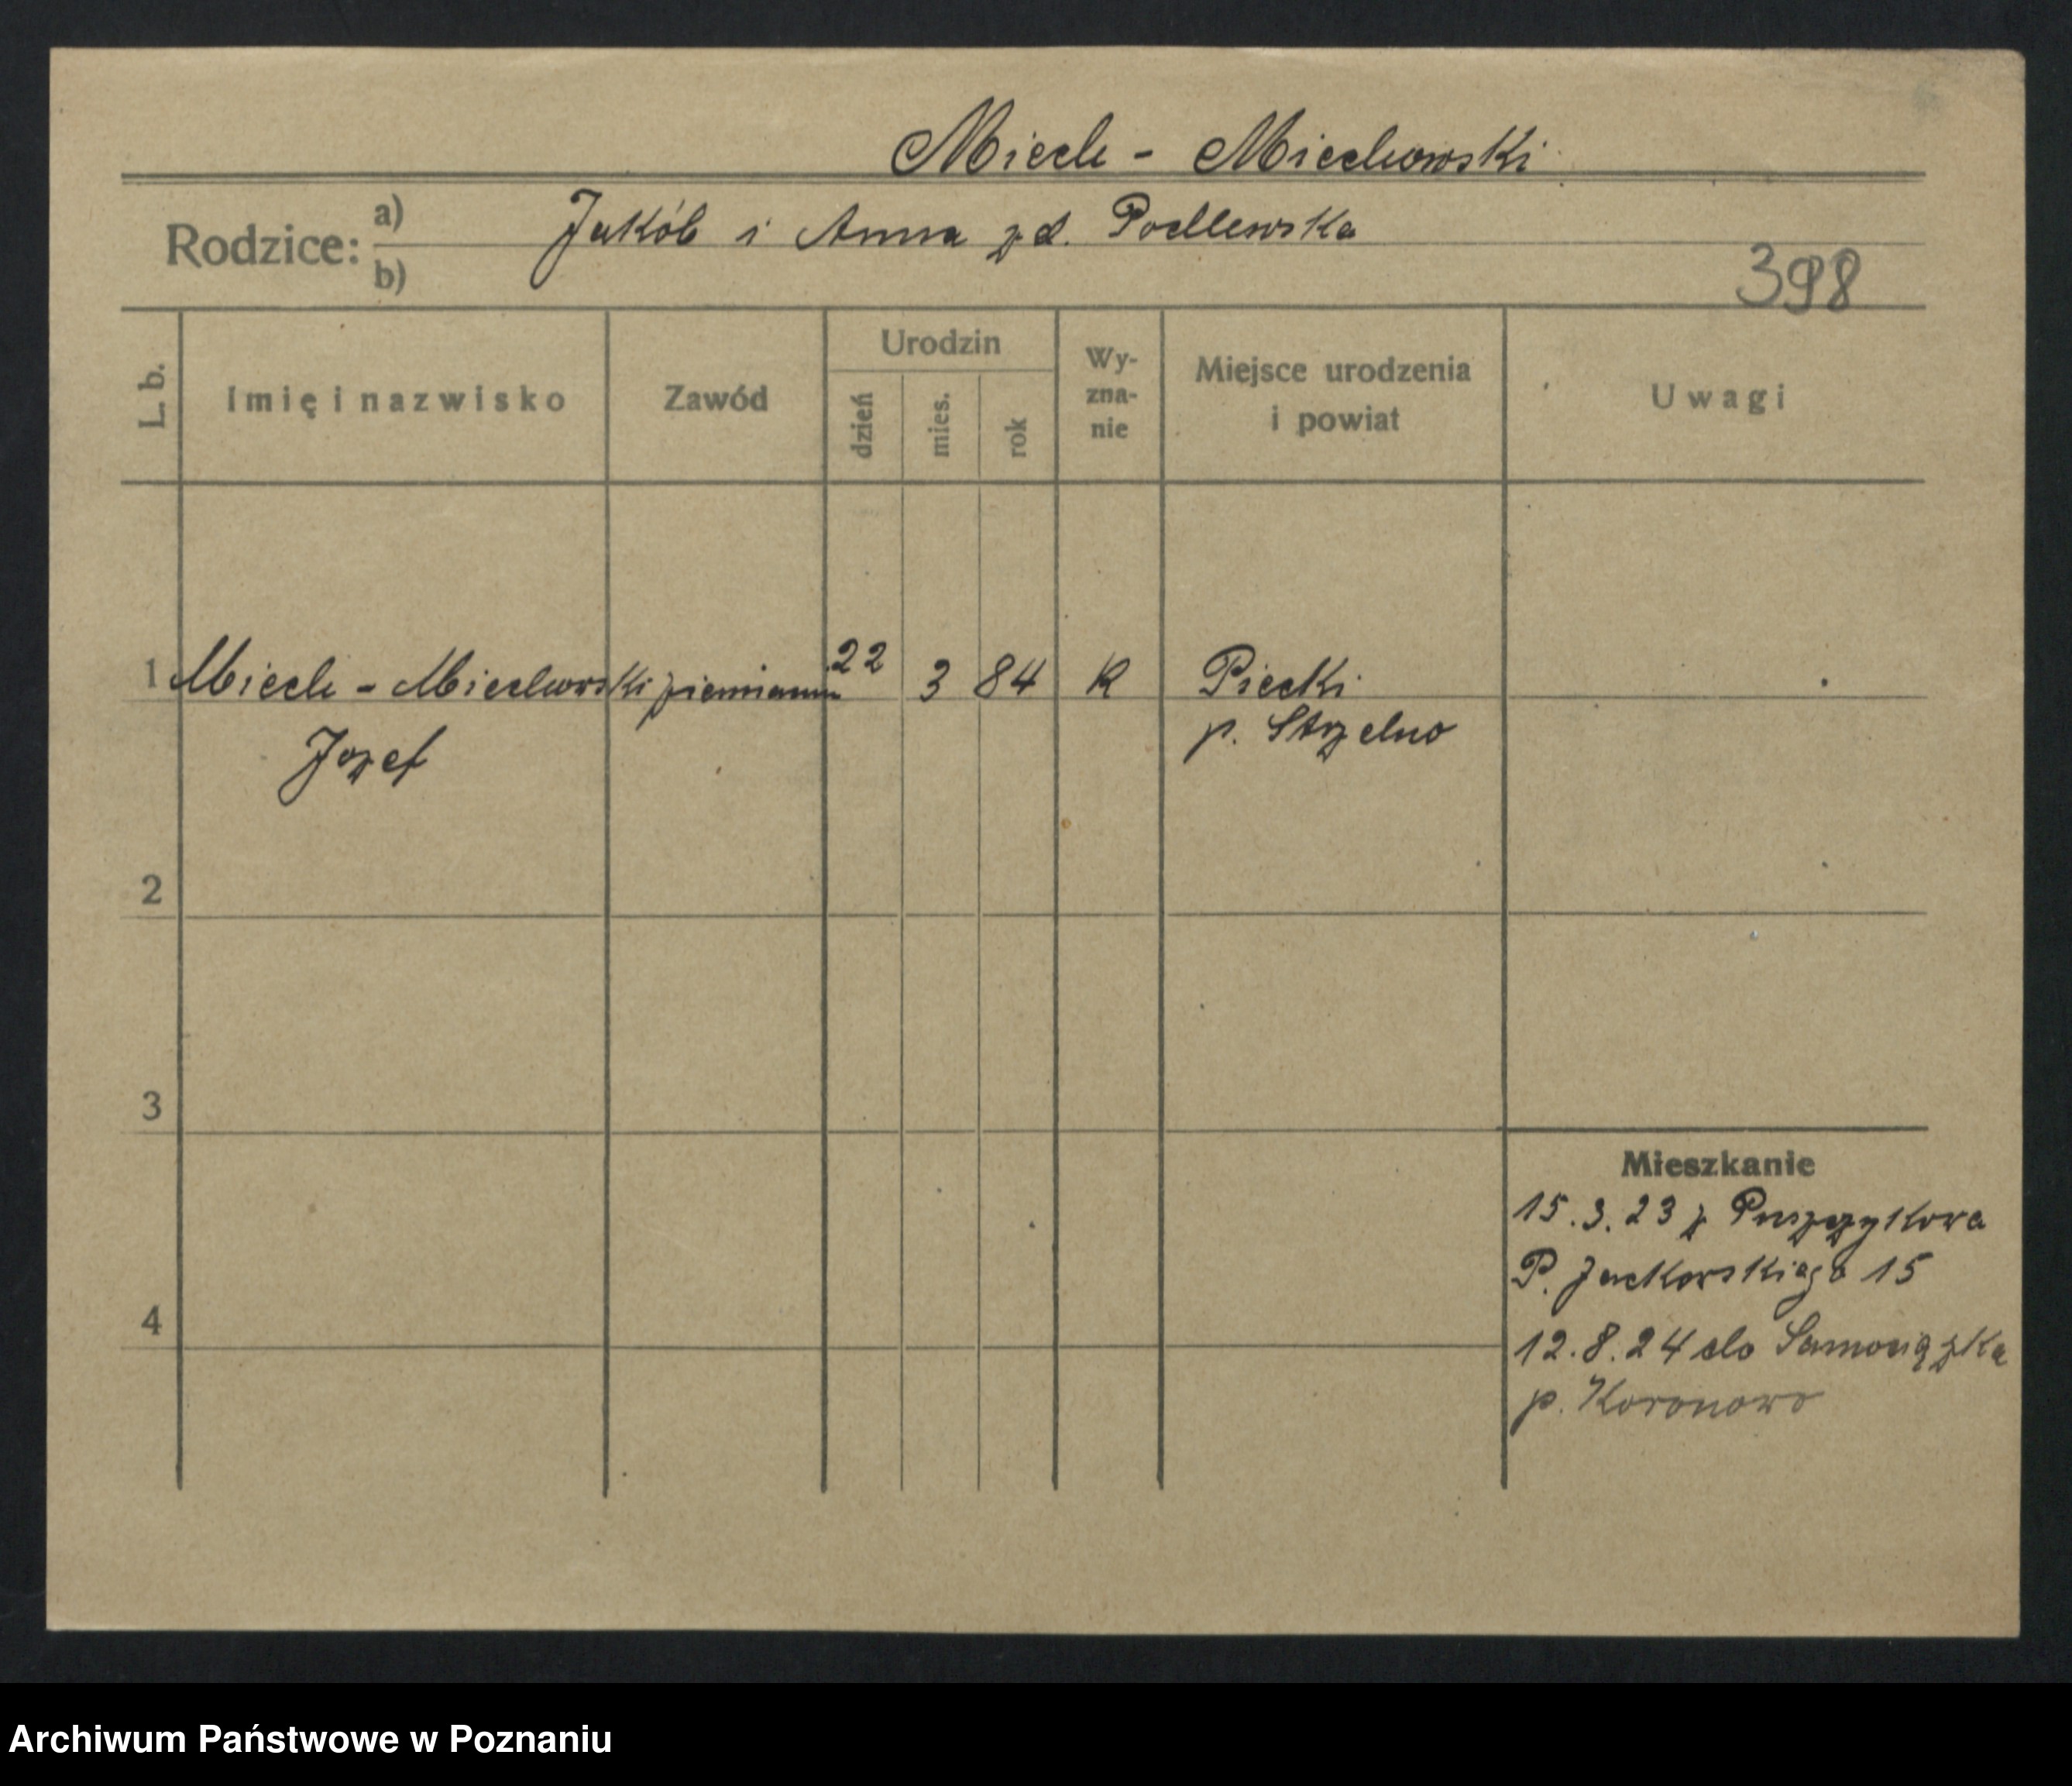 Miech - Miechowski
Rodzice: a) Jakób i Anna zd. Podlewska
b)
398
L. b.
Imię i nazwisko
Zawód
Urodzin
dzień
mies.
rok
Wy-
zna-
nie
Miejsce urodzenia
i powiat
Uwagi
1 Miech - Miechowski ziemianin 22 3 84 k Piecki
Jozef p. Strzelno
2
3
Mieszkanie
15.3.23 z Puszczykowa
P. Jackowskiego 15
4
12.8.24 do Samociążka
p. Koronowo
Archiwum Państwowe w Poznaniu